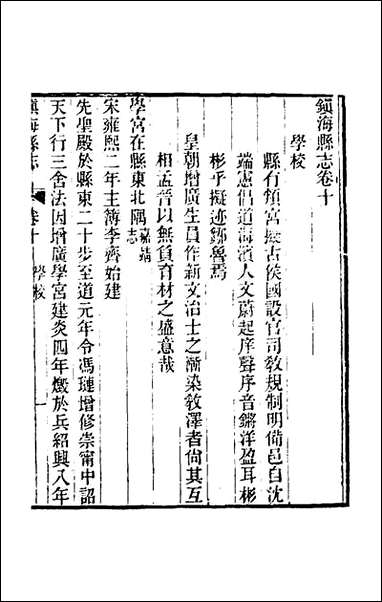 鎮海縣志卷十
學校
縣有頖宮擬古侯國設官司敎規制明備邑自沈
端憲倡道海濱人文蔚起庠聲序音鏘洋盈耳彬
彬乎擬迹鄒魯焉
皇朝增廣生員作新文治士之漸染敎澤者尙其互
相孟晉以無負育材之盛意哉
學宮在縣東北隅嘉靖志
宋雍熙二年主簿李齊始建
先聖殿於縣東二十步至道元年令馮璉增修崇甯中詔
天下行三舍法因增廣學宮建炎四年燬於兵紹興八年
鎮海縣志 卷十 學校 一